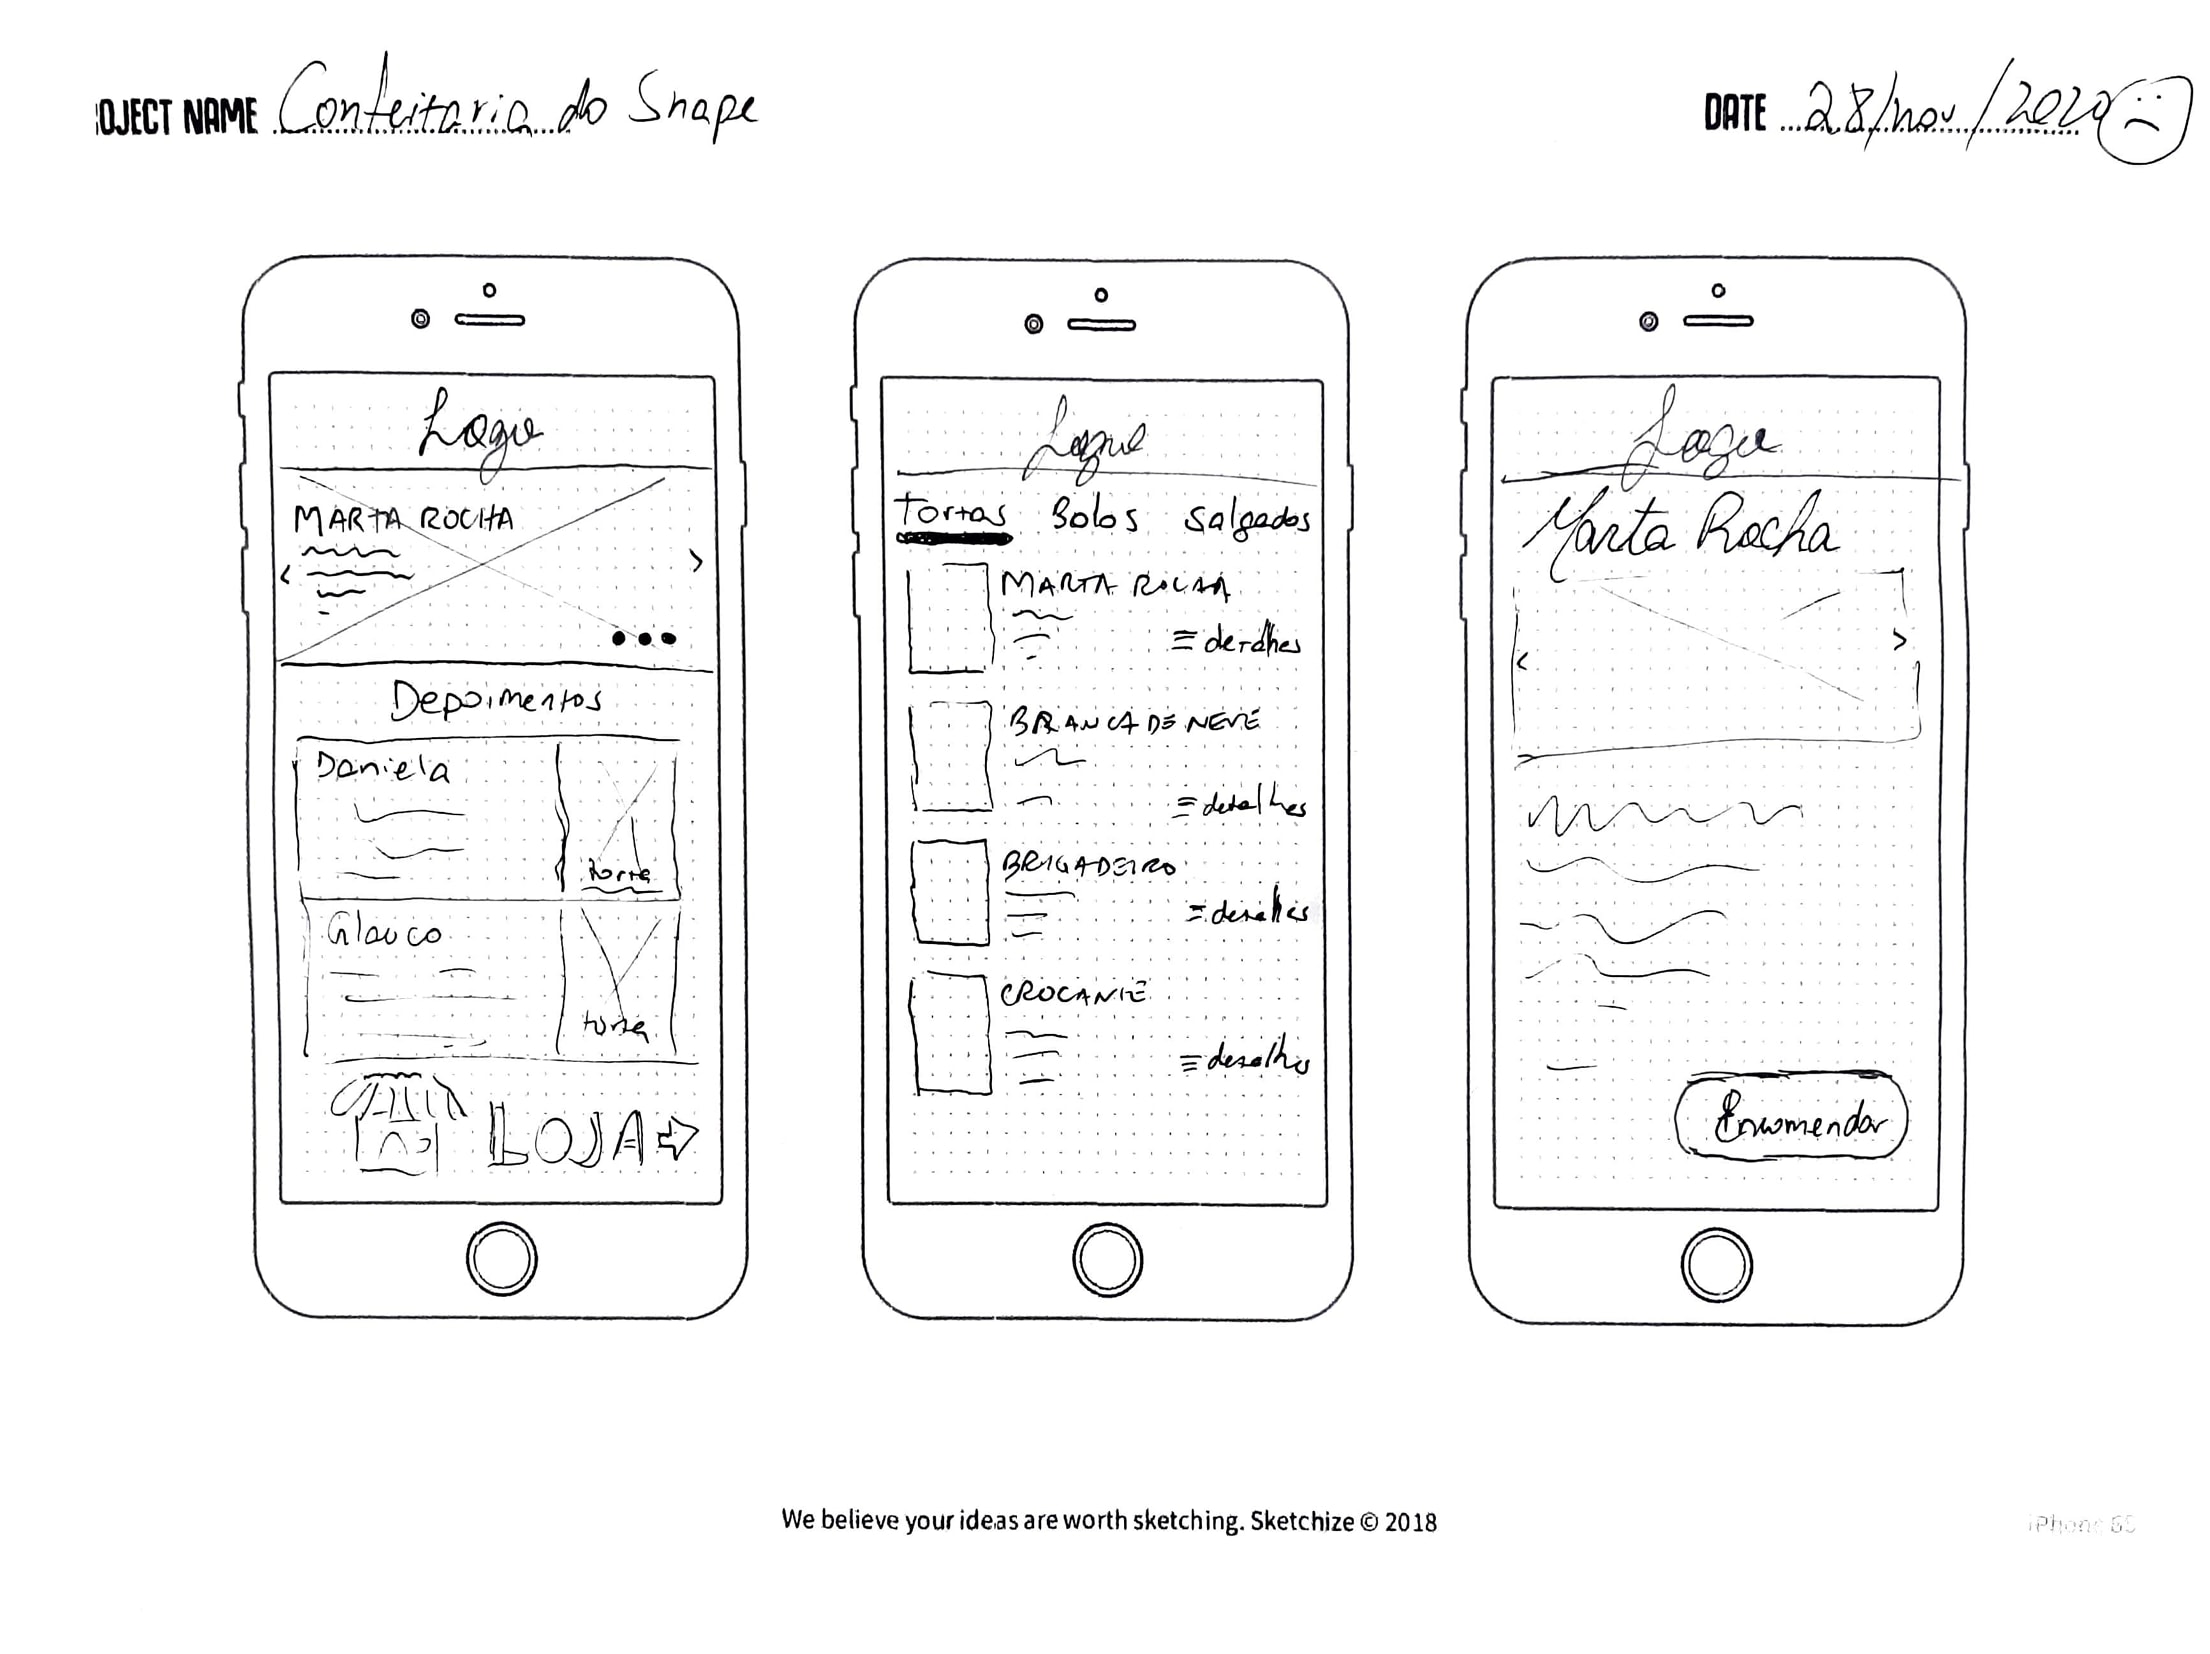 OJECT NAME Confeitaria do Snape
DATE 28/nov/2020
Logo
MARTA ROCHA
Depoimentos
Daniela
torta
Glauco
torta
LOJA
Logo
Tortas Bolos Salgados
MARTA ROCHA
detalhes
BRANCA DE NEVE
detalhes
BRIGADEIRO
detalhes
CROCANTE
detalhes
Logo
Marta Rocha
Encomendar
We believe your ideas are worth sketching. Sketchize © 2018